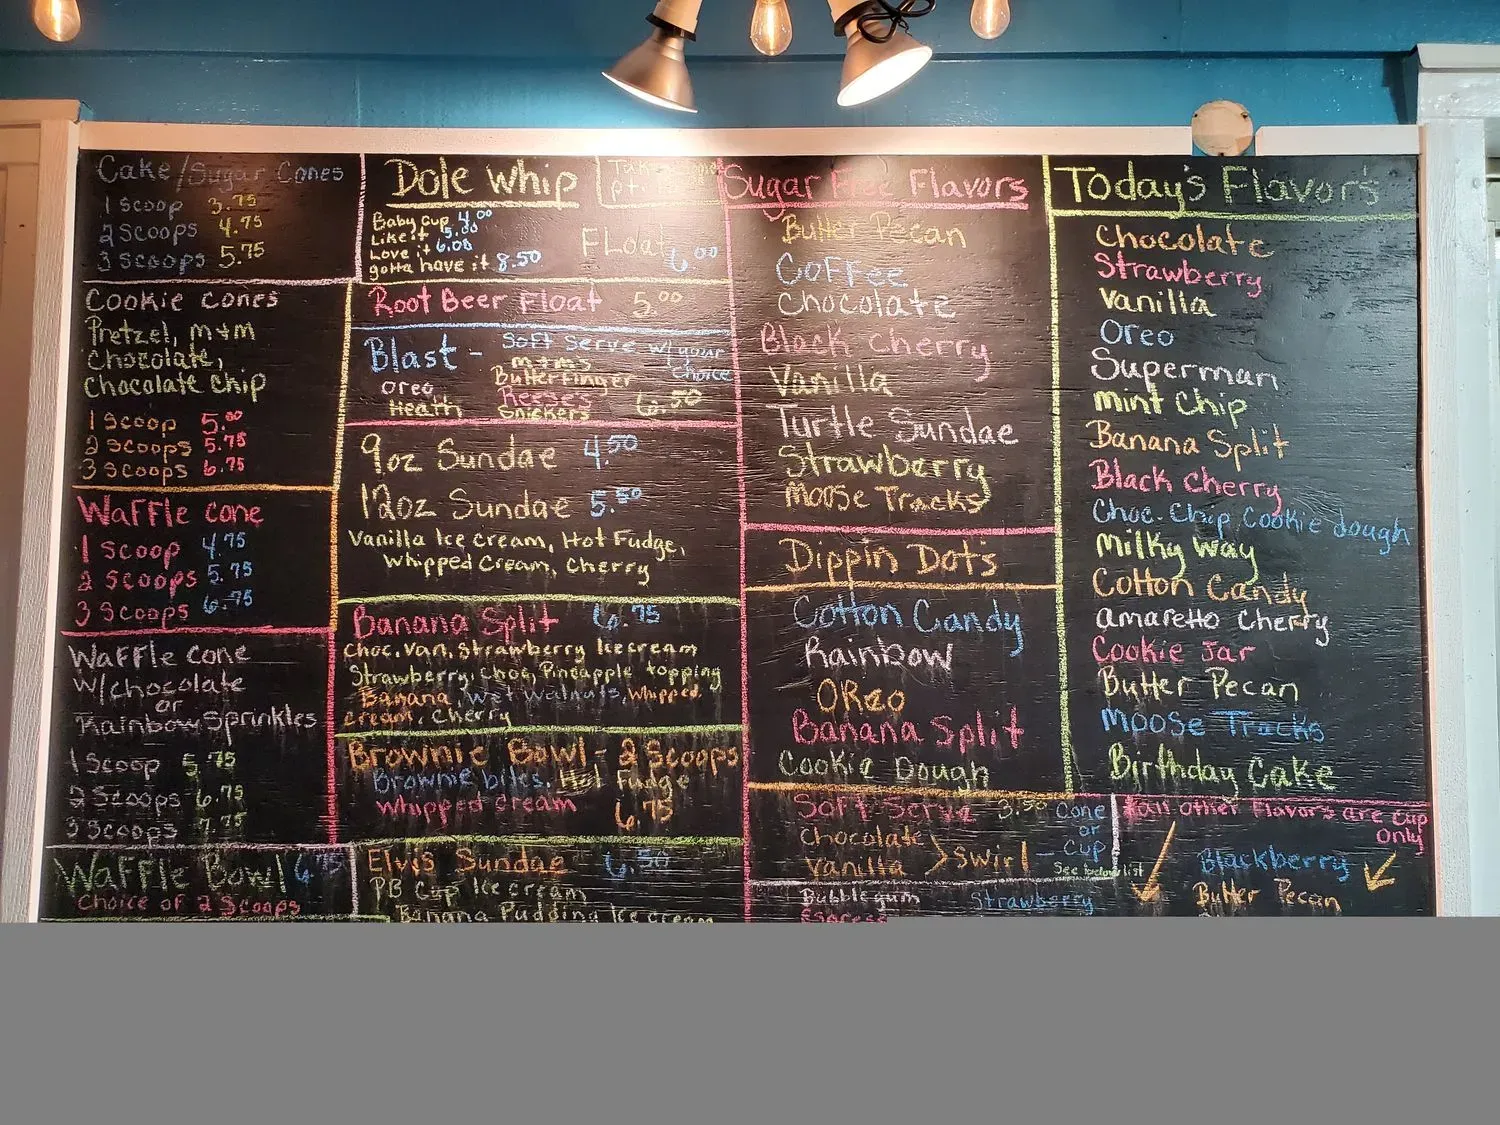 Cake/Sugar Cones
1 Scoop 3.75
2 Scoops 4.75
3 Scoops 5.75
Cookie Cones
Pretzel, M+M
Chocolate,
Chocolate Chip
1 Scoop 5.00
2 Scoops 5.75
3 Scoops 6.75
Waffle Cone
1 Scoop 4.75
2 Scoops 5.75
3 Scoops 6.75
Waffle Cone
w/chocolate
or
Rainbow Sprinkles
1 Scoop 5.75
2 Scoops 6.75
3 Scoops 7.75
Waffle Bowl 6.75
Choice of 2 Scoops
Dole Whip
Baby Cup 4.00
Like it 5.00
Love it 6.00
gotta have it 8.50
Float 6.00
Root Beer Float 5.00
Blast - Soft Serve w/your
choice
Oreo M+Ms
Butterfinger
Heath Reese's
Snickers 6.50
9oz Sundae 4.50
12oz Sundae 5.50
Vanilla Ice cream, Hot Fudge,
Whipped Cream, Cherry
Banana Split 6.75
Choc. Van. Strawberry Icecream
Strawberry, Choc, Pineapple topping
Banana, Wet Walnuts, Whipped
cream, Cherry
Brownie Bowl - 2 Scoops
Brownie bites, Hot Fudge
Whipped Cream
6.75
Elvis Sundae 6.50
PB Cup Ice cream
Banana Pudding Ice cream
Sugar Free Flavors
Butter Pecan
Coffee
Chocolate
Black Cherry
Vanilla
Turtle Sundae
Strawberry
Moose Tracks
Dippin Dot's
Cotton Candy
Rainbow
Oreo
Banana Split
Cookie Dough
Soft Serve 3.50 Cone
or
Cup
Chocolate
Vanilla > Swirl
See below list
Bubblegum Strawberry
Today's Flavor's
Chocolate
Strawberry
Vanilla
Oreo
Superman
Mint Chip
Banana Split
Black Cherry
Choc. Chip Cookie dough
Milky Way
Cotton Candy
Amaretto Cherry
Cookie Jar
Butter Pecan
Moose Tracks
Birthday Cake
*all other Flavor's are cup
Only
Blackberry
Butter Pecan